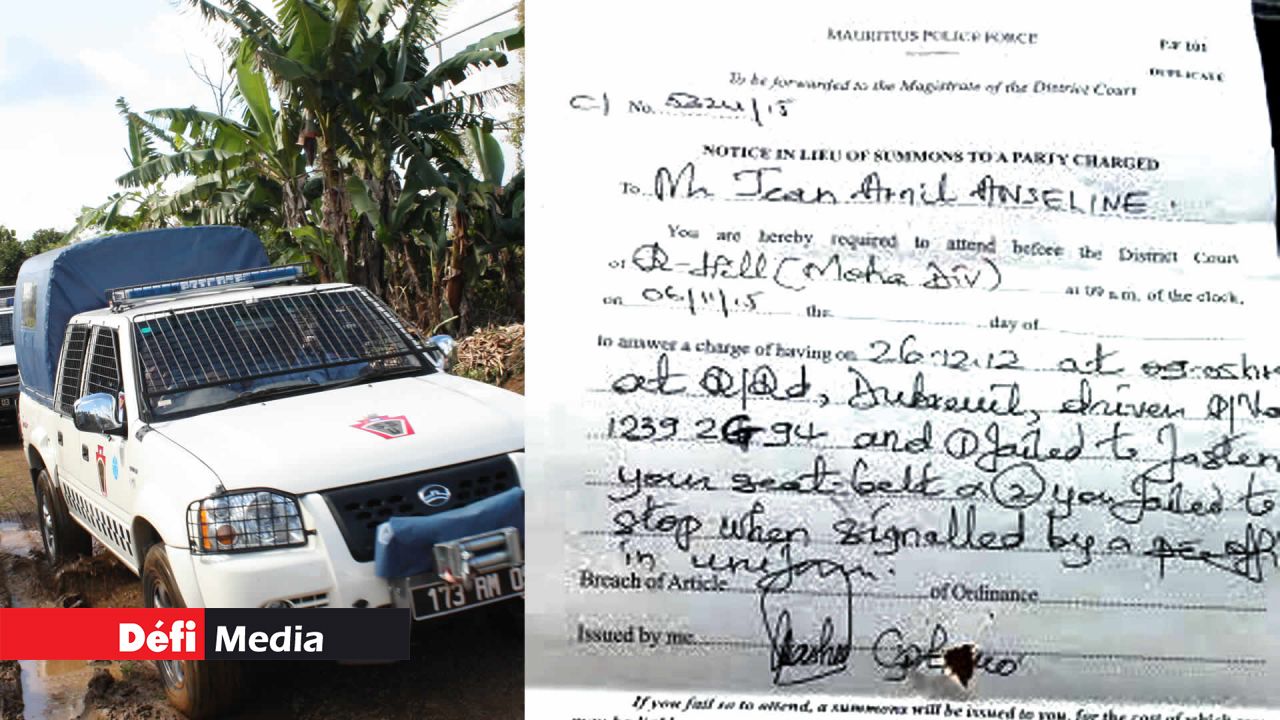 POLICE
173 RM 0
Défi Media
MAURITIUS POLICE FORCE
P.F 101
DUPLICATE
To be forwarded to the Magistrate of the District Court
No. 5324/15
NOTICE IN LIEU OF SUMMONS TO A PARTY CHARGED
To Mr Jean Arnil ANSELINE
You are hereby required to attend before the District Court
of R-Hill (Moka Div) at 09 a.m. of the clock,
on 06/11/15 the day of
to answer a charge of having on 26.12.12 at
at Dubreuil, driven
1239 ZG 94 and ① failed to fasten
your seat-belt & ② you failed to
stop when signalled by a
in uniform.
Breach of Article of Ordinance
Issued by me
If you fail so to attend, a summons will be issued to you, for the cost of which
may be liable